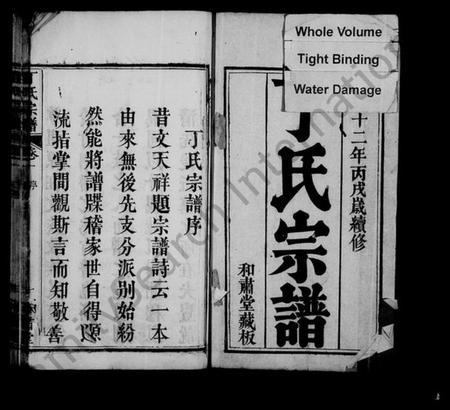 Whole Volume
Tight Binding
Water Damage
十二年丙戌歲續修
丁氏宗譜
和肅堂藏板
丁氏宗譜序
昔文天祥題宗譜詩云一本
由來無後先支分派別始紛
然能將譜牒稽家世自得源
流指掌間觀斯言而知敬善
氏宗譜